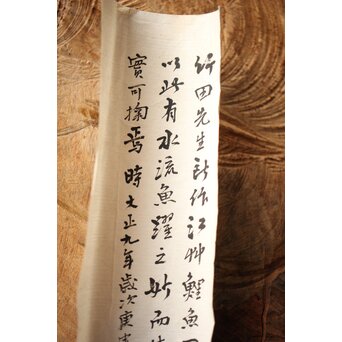 竹田先生所作江州鯉魚
以此有水流魚躍之妙而
實可掬焉時大正九年歲次庚